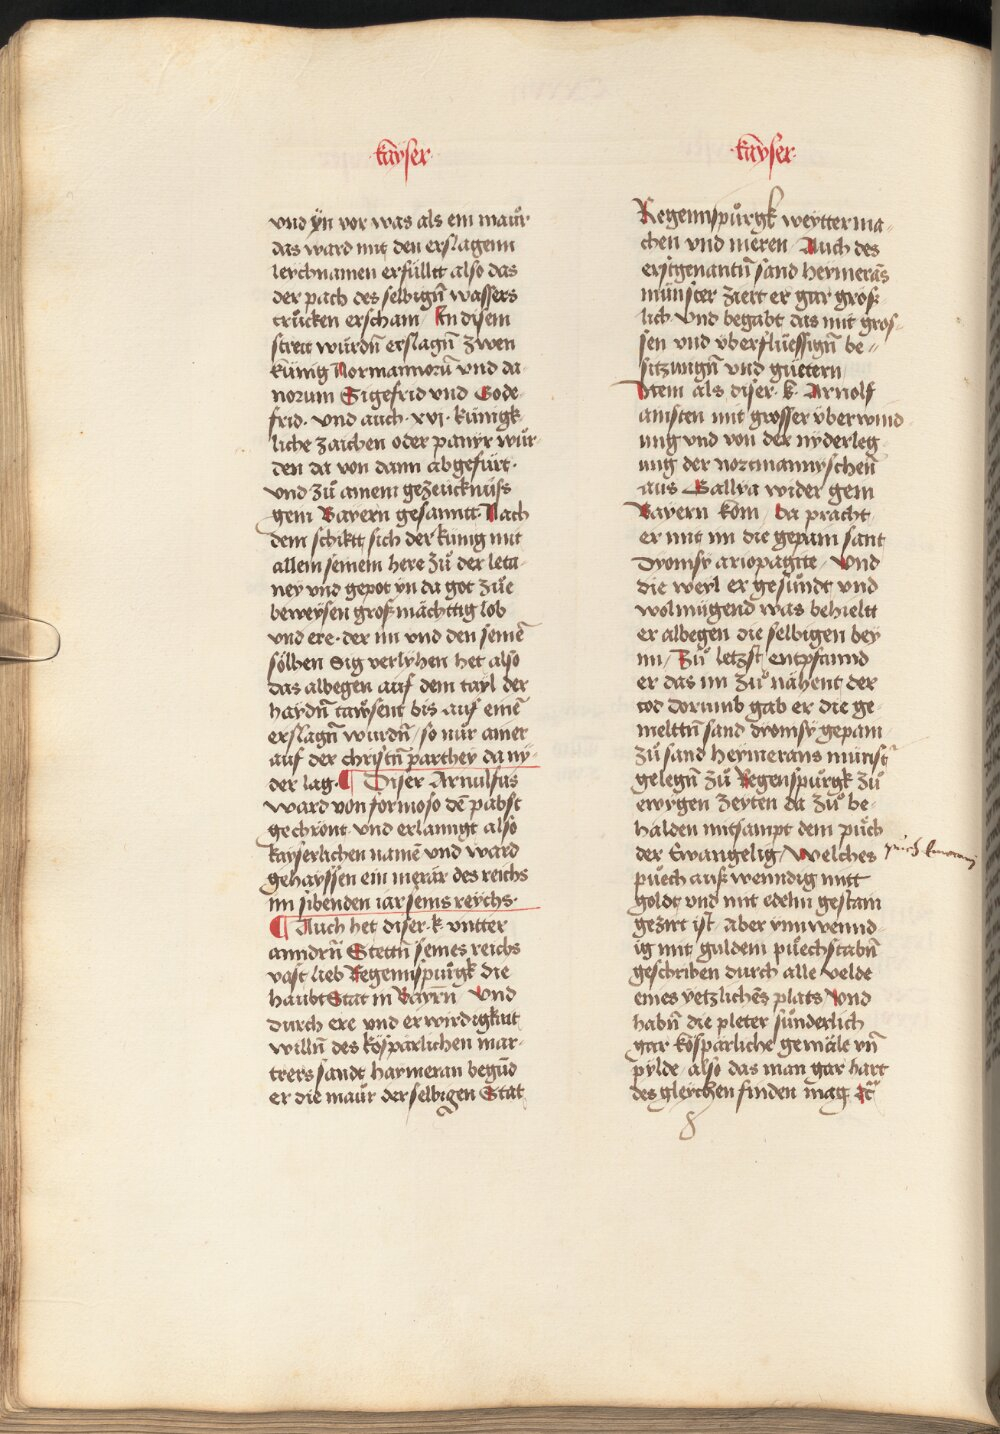 kayser
und yn vor was als ein maür
das ward mit den erslagenn
leychnamen erfülltt also das
der pach des selbign̄ wassers
trücken erscham / In disem
streit würdn̄ erslagn̄ zwen
künig Normannorū und da
norum Sigefrid und Gode
frid · und auch · xvj · künigk
liche zaichen oder panyr wur
den da von dann abgefürt ·
und zů ainem gezeücknüss
gein Bayern gesanntt · Nach
dem schikt sich der künig mit
allem seinem here zů der leta
ney und gepot yn da got zůe
beweysen großmächttig lob
und ere · der im und den seinē
sölhen Sig verlyhen het also
das albegen auf dem tayl der
haydn̄ tawsent bis auf einē
erslagn̄ wurdn̄ / so nür ainer
auf der christn̄ parthey da ny-
der lag · ¶ Diser Arnulfus
ward von formoso dē pabst
gechrönt und erlanngt also
kayserlichen namē und ward
gehayssen ein merär des reichs
im sibenden iar seins reychs ·
¶ Auch het diser · k · untter
anndrn̄ Stettn̄ seines reichs
vast lieb Regennspürgk die
haubt Stat in Bayrn̄ Und
durch ere und erwirdigkait
willn̄ des kospärlichen mar-
trers sandt haymeran begūd
er die maür der selbigen Stat
kayser
Regennspürgk weytter ma-
chen und meren / Auch des
erstgenantn̄ sand heymerās
münster ziert er gar groß-
lich Und begabt das mit gros-
sen und überflüessign̄ be-
sitzungn̄ und güettern
Item als diser · k · Arnolf
ainsten mit grosser überwind
ung und von der nyderleg
ung der nortmannyschen̄
aus Gallya wider gein
Bayern kom / da pracht
er mit im die gepain sant
Dyonisy ariopagite / Und
die weyl er gesündt und
wolmügend was behieltt
er albegen die selbigen bey
im / Zů letzst entpfannd
er das im zů nähent der
tod dorumb gab er die ge-
melttn̄ sand dyonisy gepain
zů sand heymerans münst̄
gelegn̄ zů Regenspürgk zů
ewygen zeyten da zů be-
halden mitsampt dem püch
der Ewangelig / Welches
püech aüß wenndig mitt
goldt und mit edelm gestain
geziert ist / Aber ynnwennd-
ig mit guldein püechstabn̄
geschriben durch alle velde
eines yetzlichēs plats / Und
habn̄ die pleter sünderlich
gar kospärliche gemäle un̄
pylde / also das man gar hart
des gleychen finden mag ꝛc̄